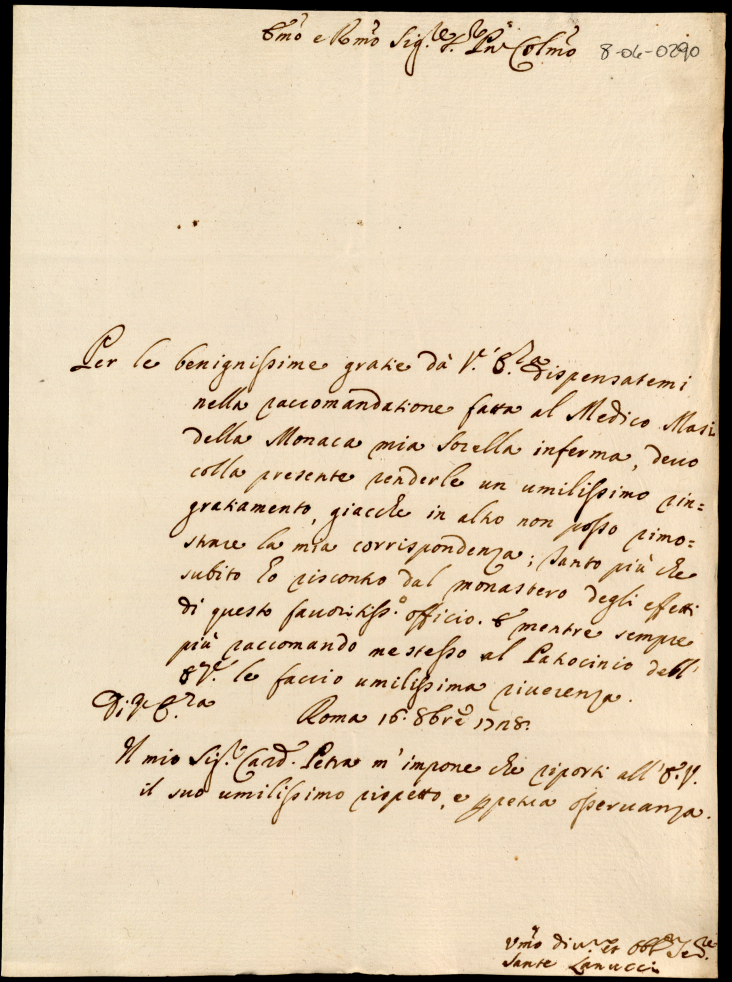 Emo e Rmo Sig.re S. Pne Colmo 8-04-0290
Per le benignissime gratie dà V.' E.za dispensatemi
nella raccomandatione fatta al Medico Masi
della Monaca mia Sorella inferma, devo
colla presente renderle un umilissimo rin=
gratiamento, giacche in altro non posso rimo=
strare la mia corrispondenza; tanto più che
subito hò riscontro dal monastero degli effetti
di questo favoritiss.o officio. E mentre sempre
più raccomando me stesso al Patrocinio dell'
E.V. le faccio umilissima riverenza.
Di V. E.za Roma 16. 8bre 1728.
Il mio Sig.r Card. Petra m'impone che riporti all'E.V.
il suo umilissimo rispetto, e ppetua osservanza.
Vmo div.mo et obb.mo Se.re
Sante Lanucci